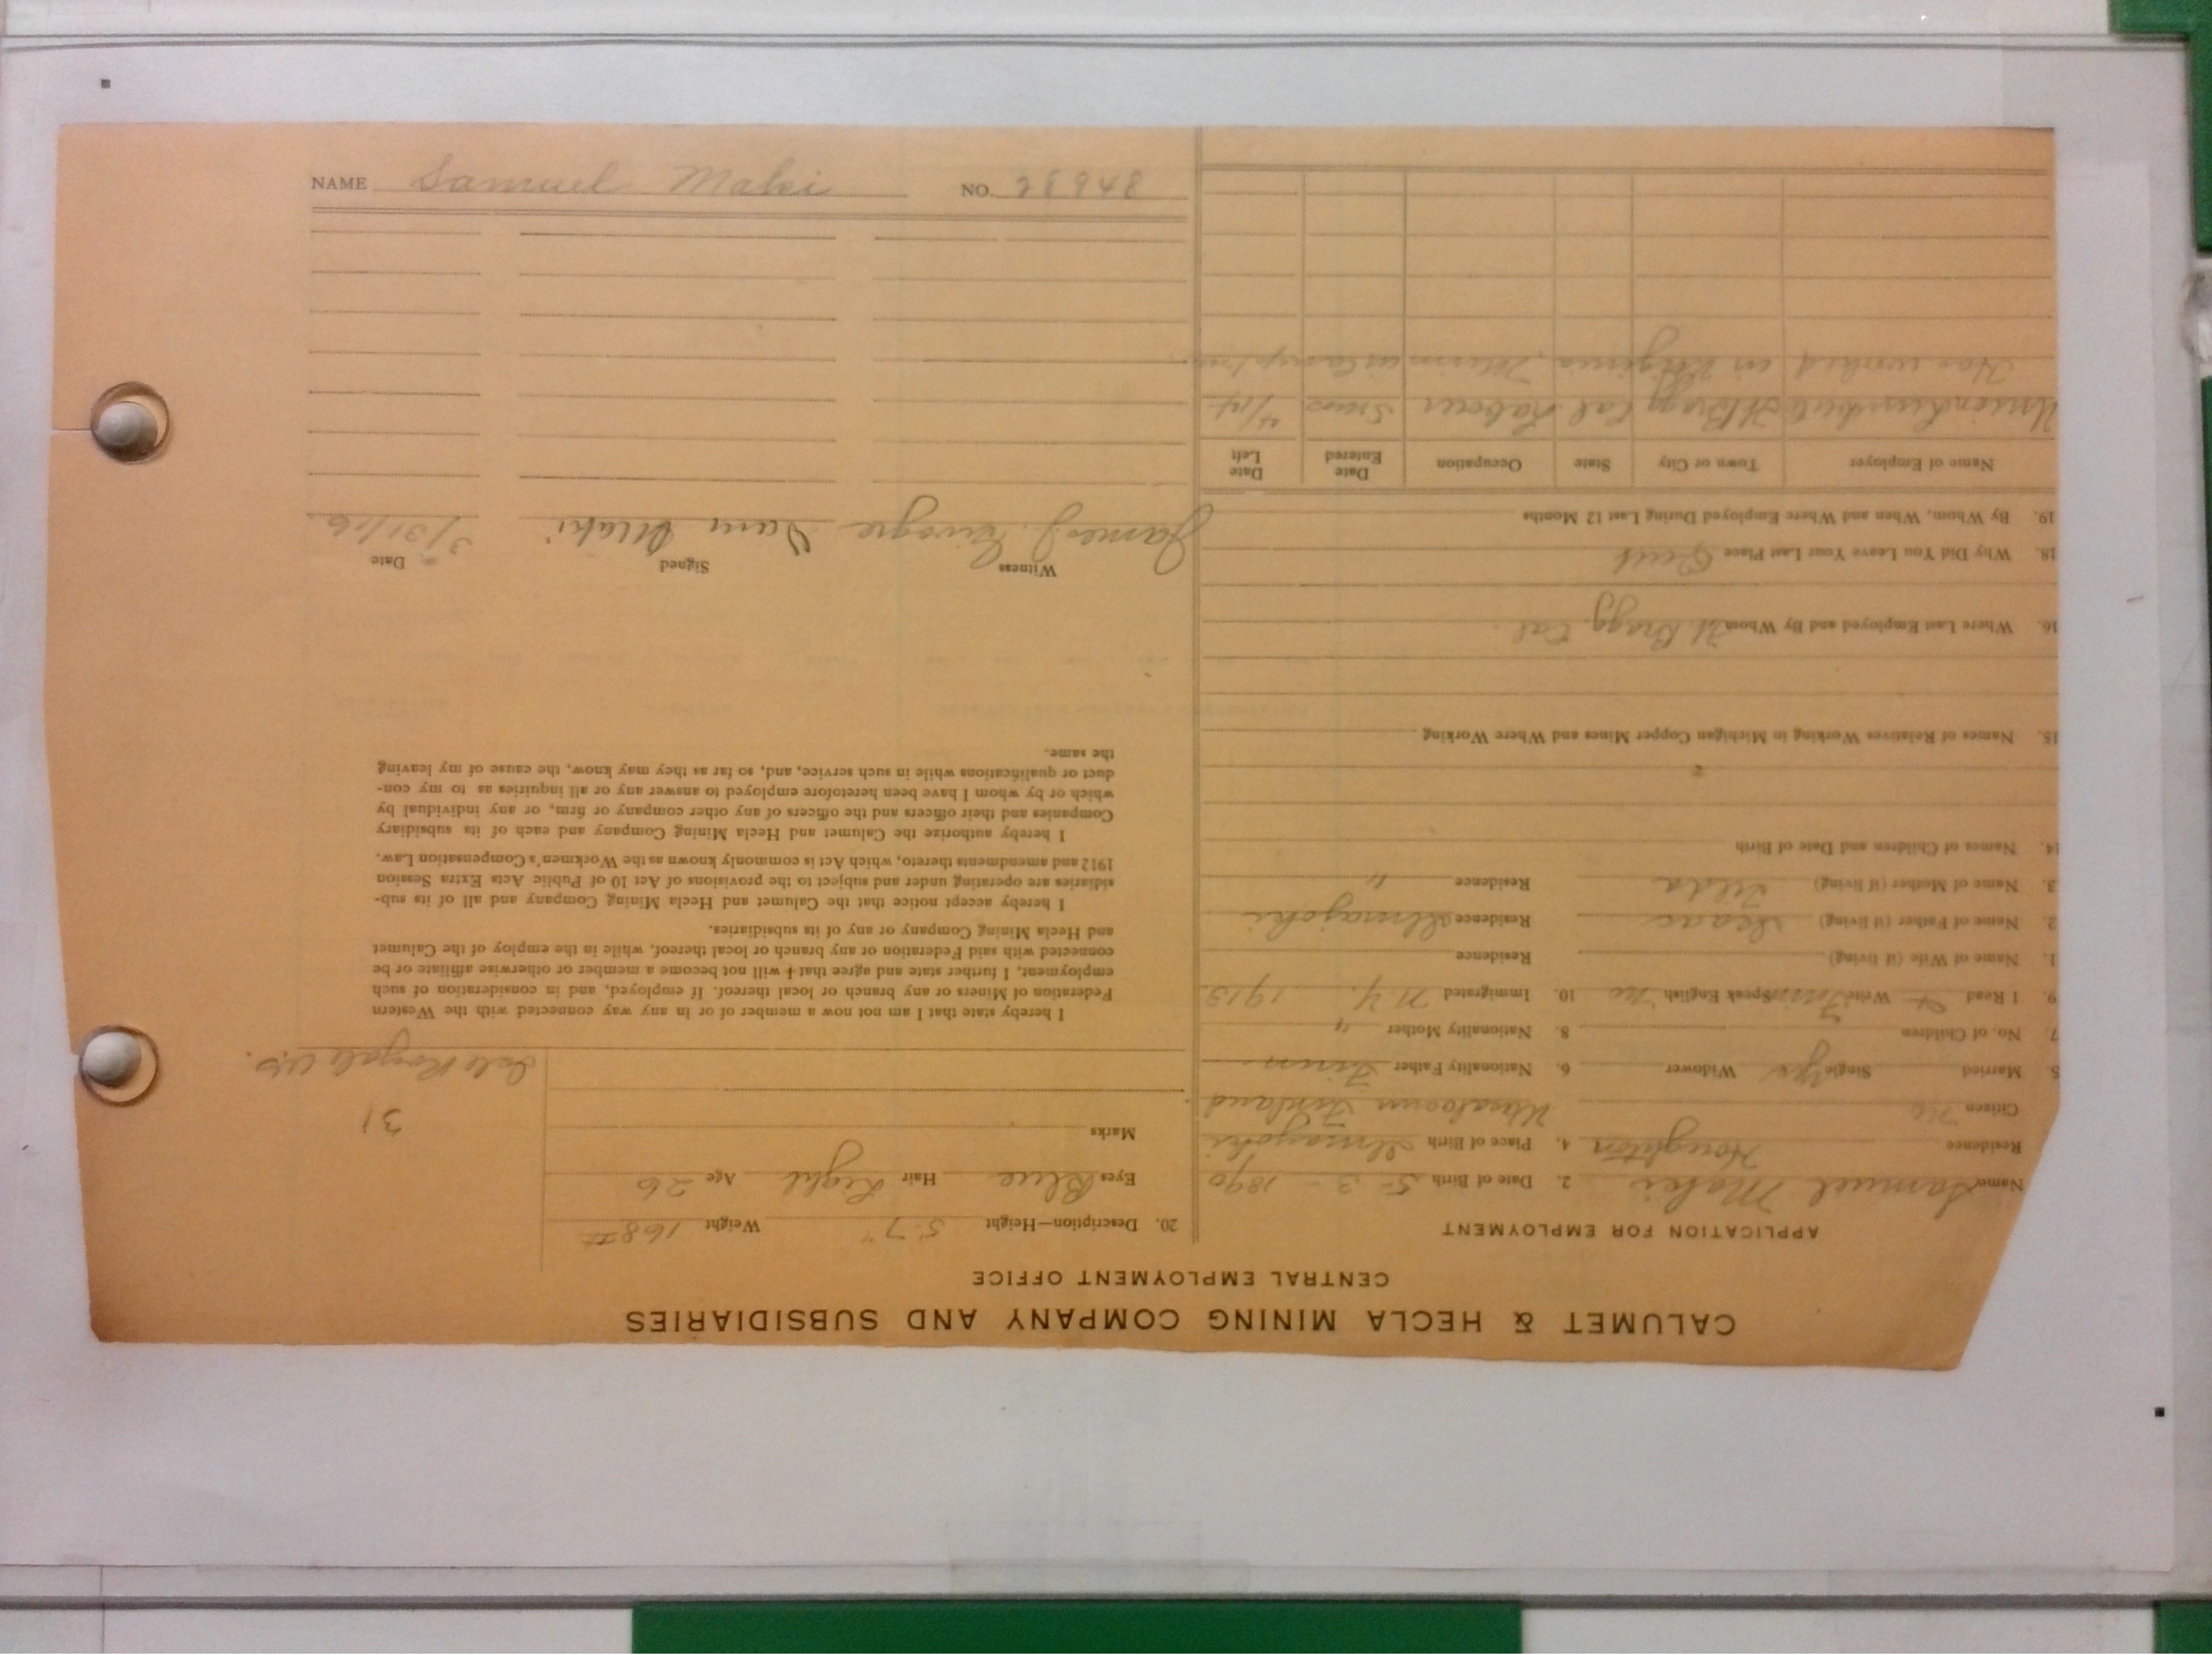 CALUMET & HECLA MINING COMPANY AND SUBSIDIARIES
CENTRAL EMPLOYMENT OFFICE
APPLICATION FOR EMPLOYMENT
Name Samuel Maki 2. Date of Birth 5-3-1890
Residence Houghton 4. Place of Birth Ilmajoki
Citizen no Finland
5. Married Single yes Widower 6. Nationality Father Finn
7. No. of Children 8. Nationality Mother "
9. I Read Write Finn Speak English no 10. Immigrated N.Y. 1913
1. Name of Wife (if living) Residence
2. Name of Father (if living) Isaac Residence Ilmajoki
3. Name of Mother (if living) Residence "
14. Names of Children and Date of Birth
15. Names of Relatives Working in Michigan Copper Mines and Where Working
16. Where Last Employed and By Whom Ft. Bragg Cal.
18. Why Did You Leave Your Last Place Quit
19. By Whom, When and Where Employed During Last 12 Months
Name of Employer Town or City State Occupation Date Entered Date Left
Union Ft Bragg Cal Labour 5 mos
Has worked in Virginia, Minn in
20. Description—Height 5-7" Weight 168#
Eyes Blue Hair Light Age 26
Marks
31
Isle Royale
I hereby state that I am not now a member of or in any way connected with the Western
Federation of Miners or any branch or local thereof. If employed, and in consideration of such
employment, I further state and agree that I will not become a member or otherwise affiliate or be
connected with said Federation or any branch or local thereof, while in the employ of the Calumet
and Hecla Mining Company or any of its subsidiaries.
I hereby accept notice that the Calumet and Hecla Mining Company and all of its sub-
sidiaries are operating under and subject to the provisions of Act 10 of Public Acts Extra Session
1912 and amendments thereto, which Act is commonly known as the Workmen's Compensation Law.
I hereby authorize the Calumet and Hecla Mining Company and each of its subsidiary
Companies and their officers and the officers of any other company or firm, or any individual by
which or by whom I have been heretofore employed to answer any or all inquiries as to my con-
duct or qualifications while in such service, and, so far as they may know, the cause of my leaving
the same.
Witness Signed Date
James J. Sam Maki 3/31/16
NAME Samuel Maki NO.